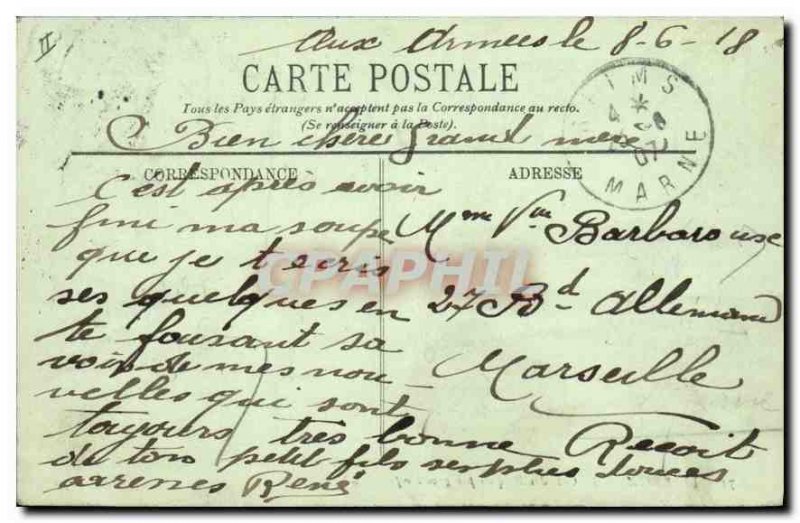 II
Aux Armées le 8-6-18
CARTE POSTALE
Tous les Pays étrangers n'acceptent pas la Correspondance au recto.
(Se renseigner à la Poste).
Bien chère grand mer
CORRESPONDANCE
ADRESSE
IMS
4 *
07
MARNE
C'est après avoir
fini ma soupe
que je t ecris
ses quelques en
te fousant sa
voir de mes nou
velles qui sont
toujours très bonne Recoit
de ton petit fils ses plus douces
René
Mme Vve Barbarouse
27 Bd Allemand
Marseille
CPAPHIL